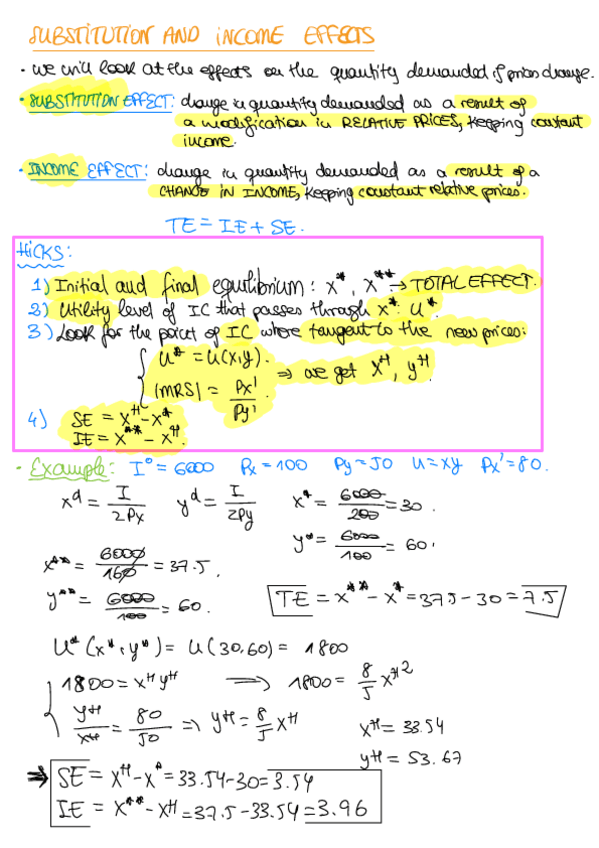 SUBSTITUTION AND INCOME EFFECTS
· we will look at the effects on the quantity demanded if prices change.
· SUBSTITUTION EFFECT: change in quantity demanded as a result of
a modification in RELATIVE PRICES, keeping constant
income.
· INCOME EFFECT: change in quantity demanded as a result of a
CHANGE IN INCOME, keeping constant relative prices.
TE = IE + SE.
HICKS:
1) Initial and final equilibrium: x*, x** → TOTAL EFFECT.
2) Utility level of IC that passes through x*: U*.
3) Look for the point of IC where tangent to the new prices:
{ U* = U(x,y).
|MRS| = Px'/Py' ⇒ we get x^H, y^H.
4) SE = x^H - x*
IE = x** - x^H.
· Example: I° = 6000 Px = 100 Py = 50 U = xy Px' = 80.
x^d = I/2Px y^d = I/2Py x* = 6000/200 = 30.
y* = 6000/100 = 60.
x** = 6000/160 = 37.5.
y** = 6000/100 = 60.
TE = x** - x* = 37.5 - 30 = 7.5
U*(x*, y*) = U(30,60) = 1800
{ 1800 = x^H y^H → 1800 = 8/5 x^H2
y^H/x^H = 80/50 ⇒ y^H = 8/5 x^H x^H = 33.54
y^H = 53.67
⇒ SE = x^H - x* = 33.54 - 30 = 3.54
IE = x** - x^H = 37.5 - 33.54 = 3.96